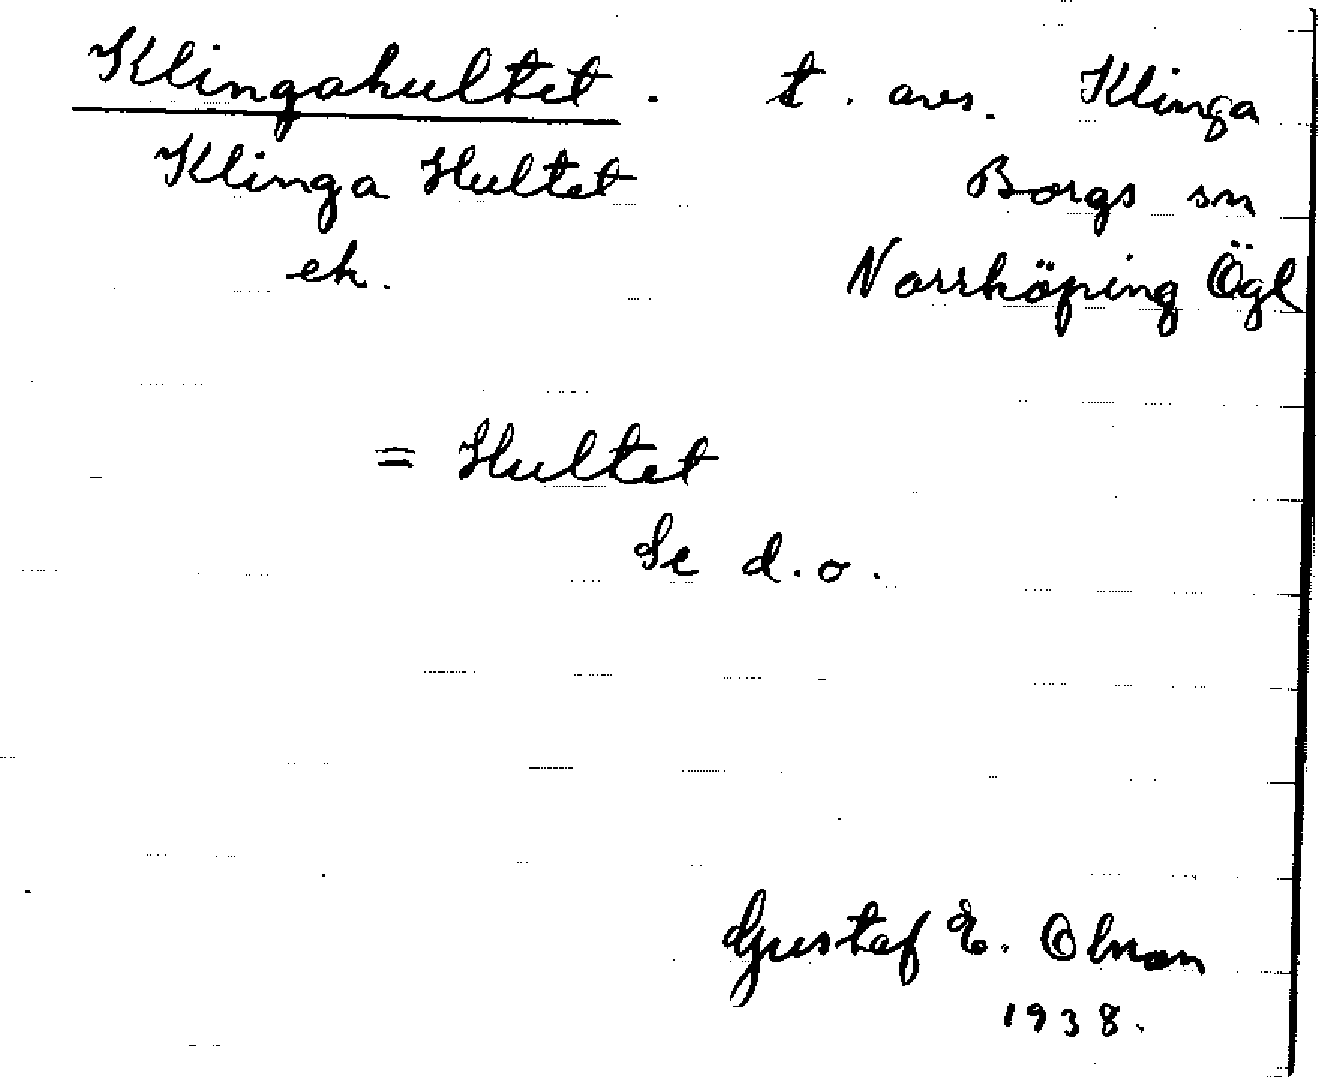 Klingahultet. t. avs. Klinga
Klinga Hultet Borgs sn
ek. Norrköping Ögl
= Hultet
Se d.o.
Gustaf E. Olson
1938.